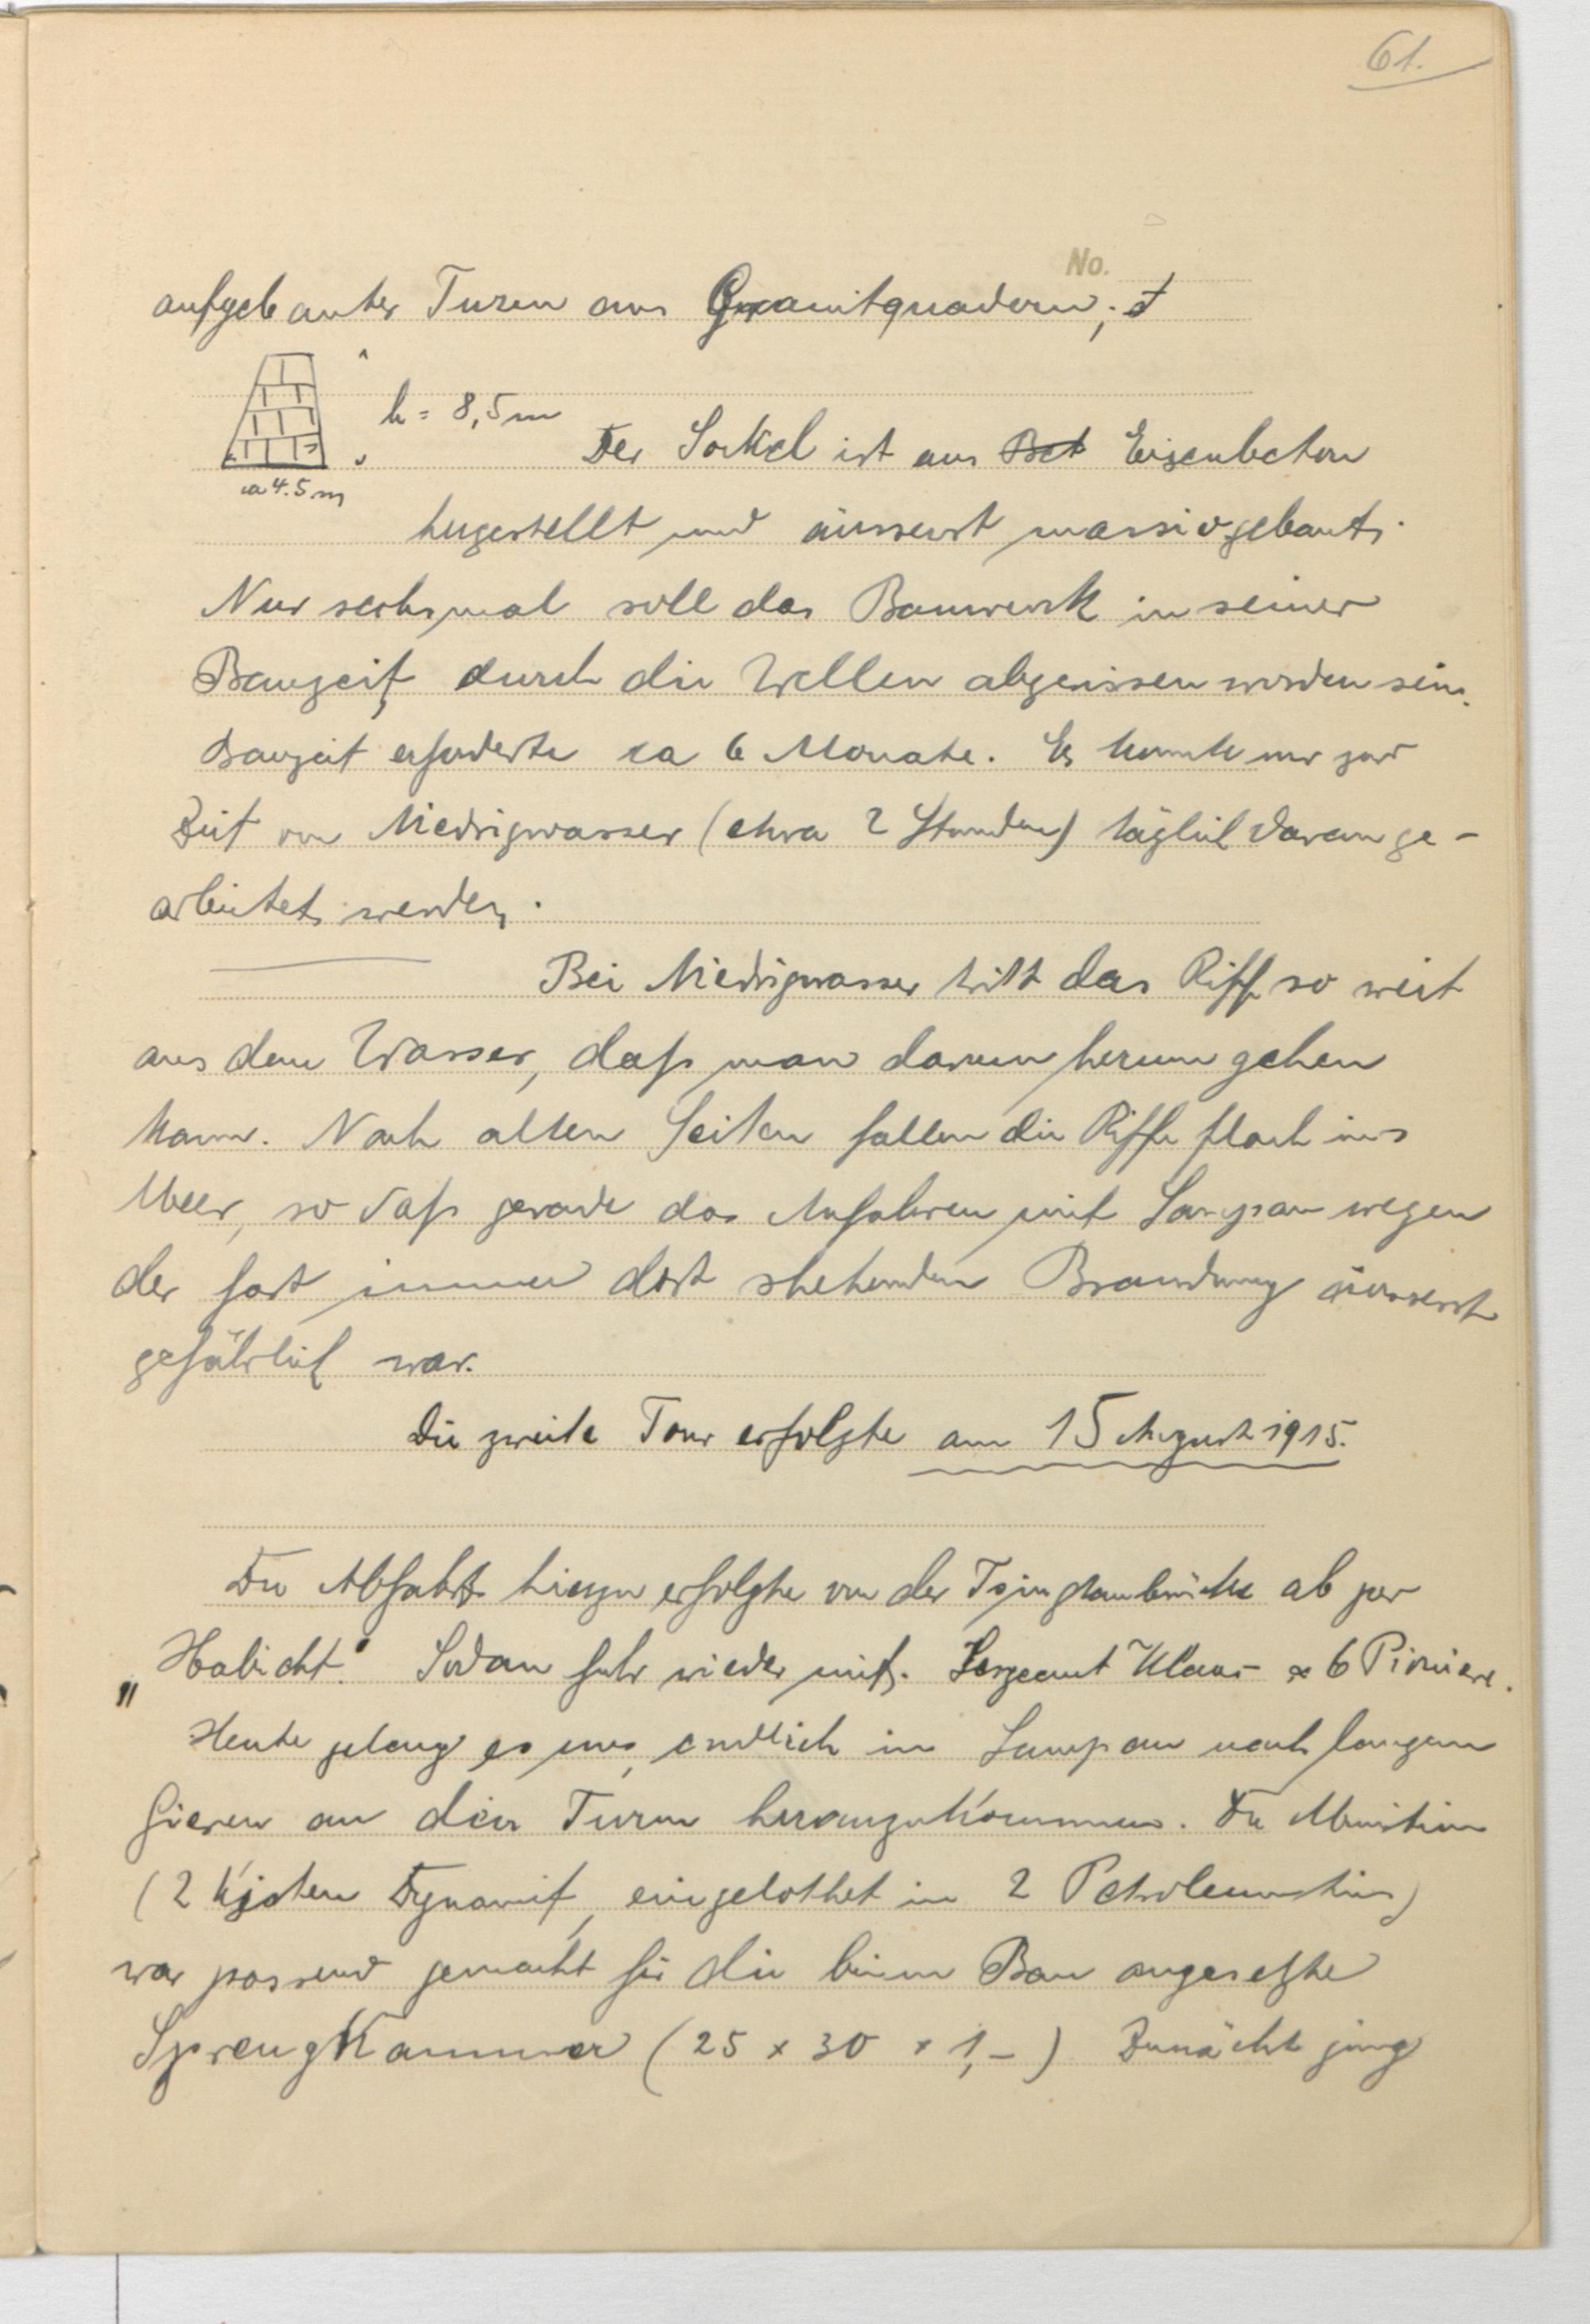 61.
No.
aufgebauter Turm aus Granitquadern; d
h = 8,5 m
Der Sockel ist aus Bet Eisenbeton
ca 4.5 m
hergestellt und äusserst massiv gebaut.
Nur sechsmal soll das Bauwerk in seiner
Bauzeit durch die Wellen abgerissen worden sein.
Bauzeit erforderte ca 6 Monate. Es konnte nur zur
Zeit von Niedrigwasser (etwa 2 Stunden) täglich daran ge-
arbeitet werden.
Bei Niedrigwasser tritt das Riff so weit
aus dem Wasser, daß man darum herum gehen
kann. Nach allen Seiten fallen die Riffe flach ins
Meer, so daß gerade das Anfahren mit Sampan wegen
der fast immer dort stehenden Brandung äusserst
gefährlich war.
Die zweite Tour erfolgte am 15 August 1915.
Die Abfahrt hierzu erfolgte von der Tsingtaubrücke ab per
„Habicht". Sodan fuhr wieder mit. Sergeant Klaus & 6 Pioniere.
Heute gelang es uns, endlich im Sampan nach langem
an den Turm heranzukommen. Die Munition
(2 Kisten Dynamit, eingelothet in 2 Petroleumtins)
war passend gemacht für die beim Bau angesetzte
Sprengkammer (25 x 30 x 1,-) Zunächst ging